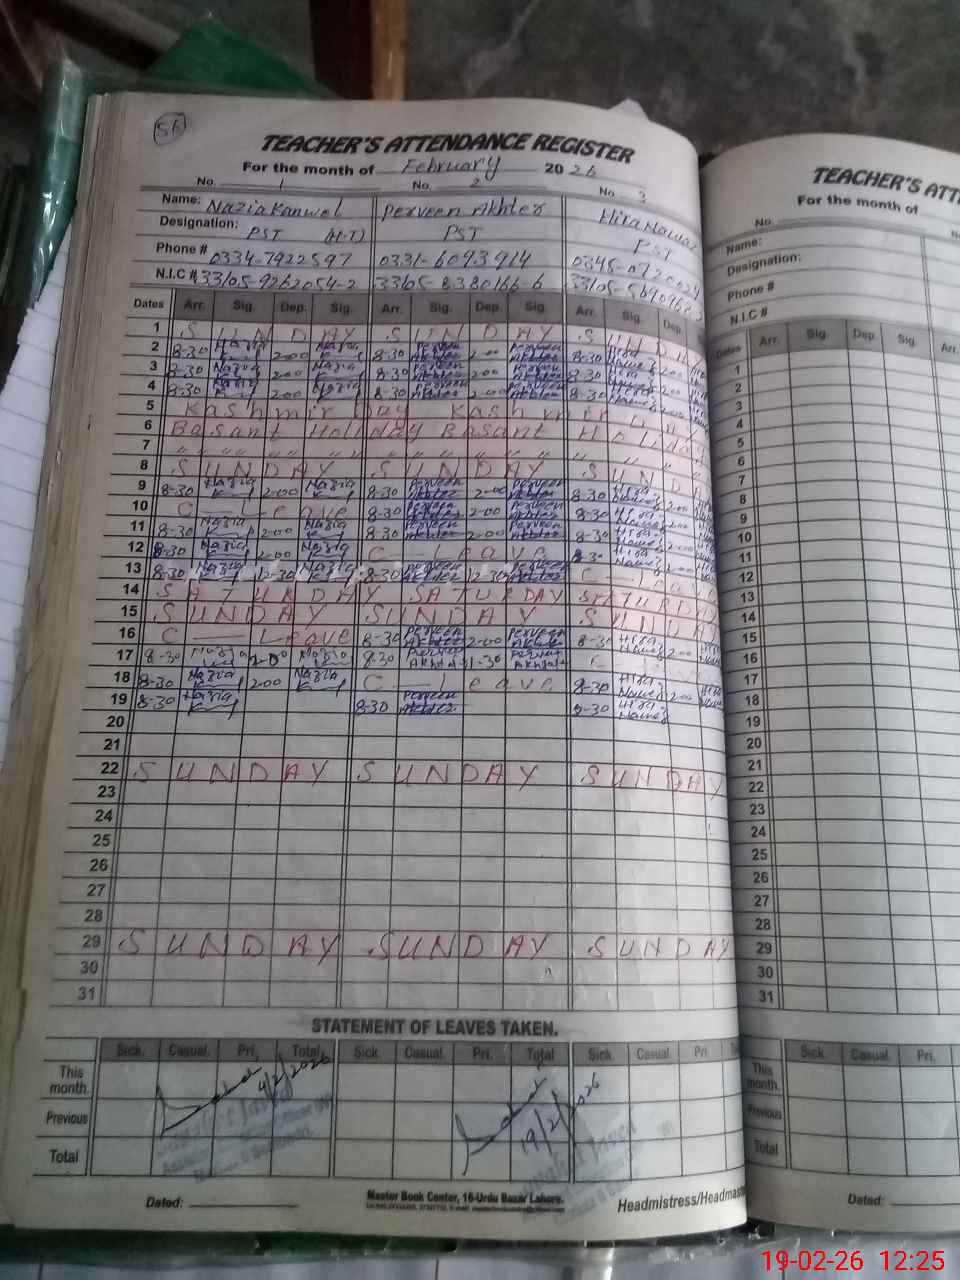 56
TEACHER'S ATTENDANCE REGISTER
For the month of February 2026
No. 1 No. 2 No. 3
Name: Nazia Kanwel Perveen Akhter Hira Nawaz
Designation: PST (H-T) PST PST
Phone # 0334-7922597 0331-6093914 0345-0720024
N.I.C # 33105-9262054-2 33105-8380166-6 33105-5690968-
Dates Arr. Sig. Dep. Sig. Arr. Sig. Dep. Sig. Arr. Sig. Dep.
1 SUNDAY SUNDAY SUNDAY
2 8-30 Nazia K 2-00 Nazia K 8-30 Perveen Akhter 2-00 Perveen Akhter 8-30 Hira Nawaz 2-00 Hira
3 8-30 Nazia K 2-00 Nazia K 8-30 Perveen Akhter 2-00 Perveen Akhter 8-30 Hira Nawaz 2-00 Hira
4 8-30 Nazia K 2-00 Nazia K 8-30 Perveen Akhter 2-00 Perveen Akhter 8-30 Hira Nawaz 2-00 Hira
5 Kashmir Day Kashmir Day
6 Basant Holiday Basant Holiday
7 " " " " " " " " " " "
8 SUNDAY SUNDAY SUNDAY
9 8-30 Nazia K 2-00 Nazia K 8-30 Perveen Akhter 2-00 Perveen Akhter 8-30 Hira Nawaz 2-00 Hira
10 C — Leave 8-30 Perveen Akhter 2-00 Perveen Akhter 8-30 Hira Nawaz 2-00 Hira
11 8-30 Nazia K 2-00 Nazia K 8-30 Perveen Akhter 2-00 Perveen Akhter 8-30 Hira Nawaz 2-00 Hira
12 8-30 Nazia K 2-00 Nazia K C — Leave 8-3 Hira Nawaz 2-00 Hira
13 8-30 Nazia K 12-30 Nazia K 8-30 Perveen Akhter 12-30 Perveen Akhter C — Leave
14 SATURDAY SATURDAY SATURDAY
15 SUNDAY SUNDAY SUNDAY
16 C — Leave 8-30 Perveen Akhter 2-00 Perveen Akhter 8-30 Hira Nawaz 2-00 Hira
17 8-30 Nazia K 2-00 Nazia K 8-30 Perveen Akhter 1-30 Perveen Akhter C
18 8-30 Nazia K 2-00 Nazia K C — Leave 8-30 Hira Nawaz 2-00 Hira Nawaz
19 8-30 Nazia K 8-30 Perveen Akhter 8-30 Hira Nawaz
20
21
22 SUNDAY SUNDAY SUNDAY
23
24
25
26
27
28
29 SUNDAY SUNDAY SUNDAY
30
31
STATEMENT OF LEAVES TAKEN.
Sick. Casual. Pri. Total Sick. Casual. Pri. Total Sick. Casual. Pri.
This month.
Previous
Total
19/2/2026
Dated:
Master Book Center, 16-Urdu Bazar Lahore.
Headmistress/Headmaste
TEACHER'S ATT
For the month of
No.
Name:
Designation:
Phone #
N.I.C #
Dates Arr. Sig. Dep. Sig. Arr.
1
2
3
4
5
6
7
8
9
10
11
12
13
14
15
16
17
18
19
20
21
22
23
24
25
26
27
28
29
30
31
Sick. Casual. Pri.
This month.
Previous
Total
Dated:
19-02-26 12:25